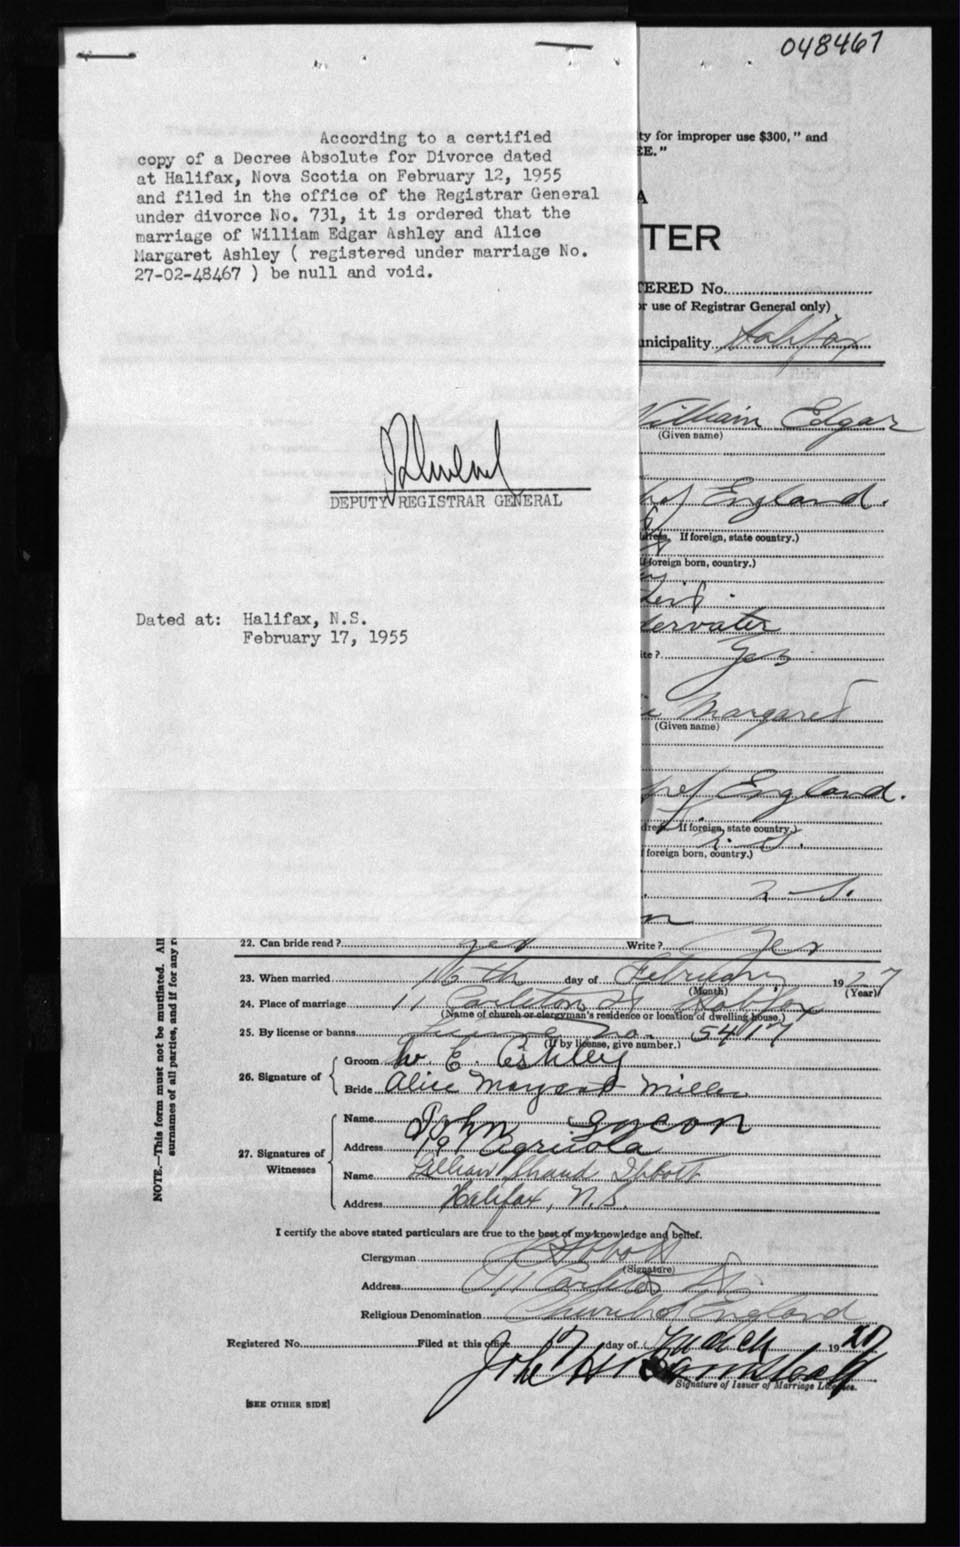 048467
According to a certified
copy of a Decree Absolute for Divorce dated
at Halifax, Nova Scotia on February 12, 1955
and filed in the office of the Registrar General
under divorce No. 731, it is ordered that the
marriage of William Edgar Ashley and Alice
Margaret Ashley ( registered under marriage No.
27-02-48467 ) be null and void.
DEPUTY REGISTRAR GENERAL
Dated at: Halifax, N.S.
February 17, 1955
ty for improper use $300," and
EE."
A
TER
TERED No.
or use of Registrar General only)
unicipality Halifax
William Edgar
(Given name)
of England.
If foreign, state country.)
foreign born, country.)
dervater
ite? Yes
Margaret
(Given name)
of England.
If foreign, state country.)
N.S.
foreign born, country.)
N.S.
22. Can bride read? Yes Write? Yes
23. When married 16th day of February 1927
(Month) (Year)
24. Place of marriage 11 Carleton St Halifax
(Name of church or clergyman's residence or location of dwelling house.)
25. By license or banns License No. 54177
(If by license, give number.)
26. Signature of
Groom W. E. Ashley
Bride Alice Margaret Miller
27. Signatures of Witnesses
Name John
Address Agricola
Name Lillian Abbott
Address Halifax, N.S.
I certify the above stated particulars are true to the best of my knowledge and belief.
Clergyman Abbott
(Signature)
Address 11 Carleton St
Religious Denomination Church of England
Registered No. Filed at this office 17 day of March 1927
Signature of Issuer of Marriage Licenses.
[SEE OTHER SIDE]
NOTE.—This form must not be mutilated. All
surnames of all parties, and if for any r